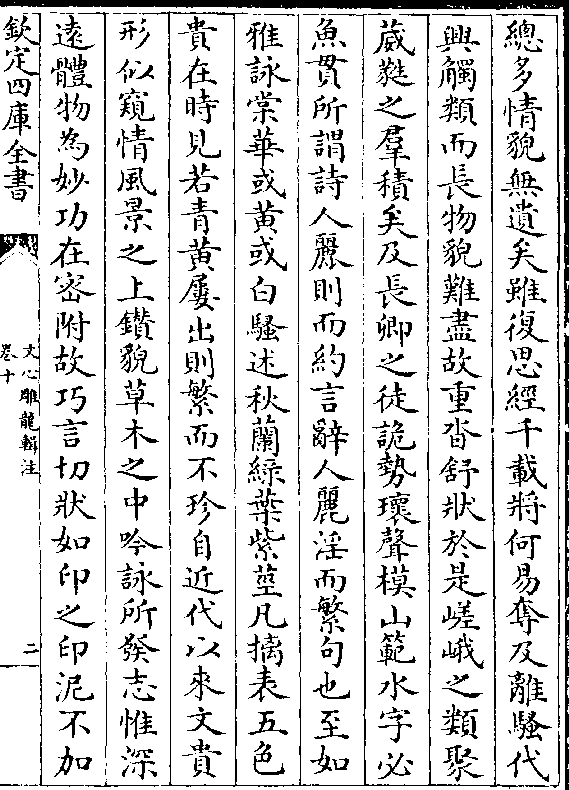 總多情貌無遺矣雖復思經千載將何易奪及離騷代
興觸類而長物貌難盡故重沓舒狀於是嵯峨之類聚
葳蕤之羣積矣及長卿之徒詭勢瓌聲模山範水字必
魚貫所謂詩人麗則而約言辭人麗淫而繁句也至如
雅詠棠華或黄或白騷述秋蘭綠葉紫莖凡摛表五色
貴在時見若青黄屢出則繁而不珍自近代以來文貴
形似窺情風景之上鑽貌草木之中吟詠所發志惟深
遠體物為妙功在密附故巧言切狀如印之印泥不加
欽定四庫全書
文心雕龍輯注
卷十
二